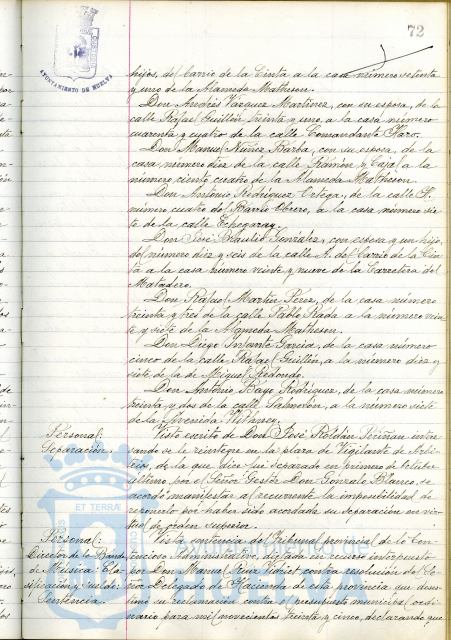 72
AYUNTAMIENTO DE HUELVA
hijos, del barrio de la Cinta a la casa número setenta
y uno de la Alameda Matheson.
Don Andrés Vázquez Martínez, con su esposa, de la
calle Rafael Guillén treinta y uno, a la casa número
cuarenta y cuatro de la calle Comandante Haro.
Don Manuel Núñez Barba, con su esposa, de la
casa número diez de la calle Ramón y Cajal a la
número ciento cuatro de la Alameda Matheson.
Don Antonio Rodríguez Ortega, de la calle
número cuatro del Barrio Obrero, a la casa número sie-
te de la calle Echegaray.
Don José González, con esposa y un hijo,
del número diez y seis de la calle A. del barrio de la Cin-
ta a la casa número veinte y nueve de la Carretera del
Matadero.
Don Rafael Martín Pérez, de la casa número
treinta y tres de la calle Pablo Rada a la número vein-
te y siete de la Alameda Matheson.
Don Diego Infante García, de la casa número
cinco de la calle Rafael Guillén, a la número diez y
siete de la de Miguel Redondo.
Don Antonio Bayo Rodríguez, de la casa número
treinta y dos de la calle Salmerón, a la número siete
de la Avenida
Personal: Visto escrito de Don José Roldán intere-
Separación. sando se le reintegre en la plaza de Vigilante de Arbi-
trios, de la que dice fué separado en primero de Octubre
último por el Señor Gestor Don Gonzalo Blanco, se
acordó manifestar al recurrente la imposibilidad de
reponerlo por haber sido acordada su separación en vir-
tud de orden superior.
ET TERRÆ
Personal: Vista sentencia del Tribunal provincial de lo Con-
Director de la Banda tencioso Administrativo, dictada en recurso interpuesto
de Música: Cla- por Don Manuel Ruiz Vidriet contra resolución del Se-
sificación y sueldo: ñor Delegado de Hacienda de esta provincia que deses-
Sentencia. timó su reclamación contra el presupuesto municipal ordi-
nario para mil novecientos treinta y cinco, declarando que